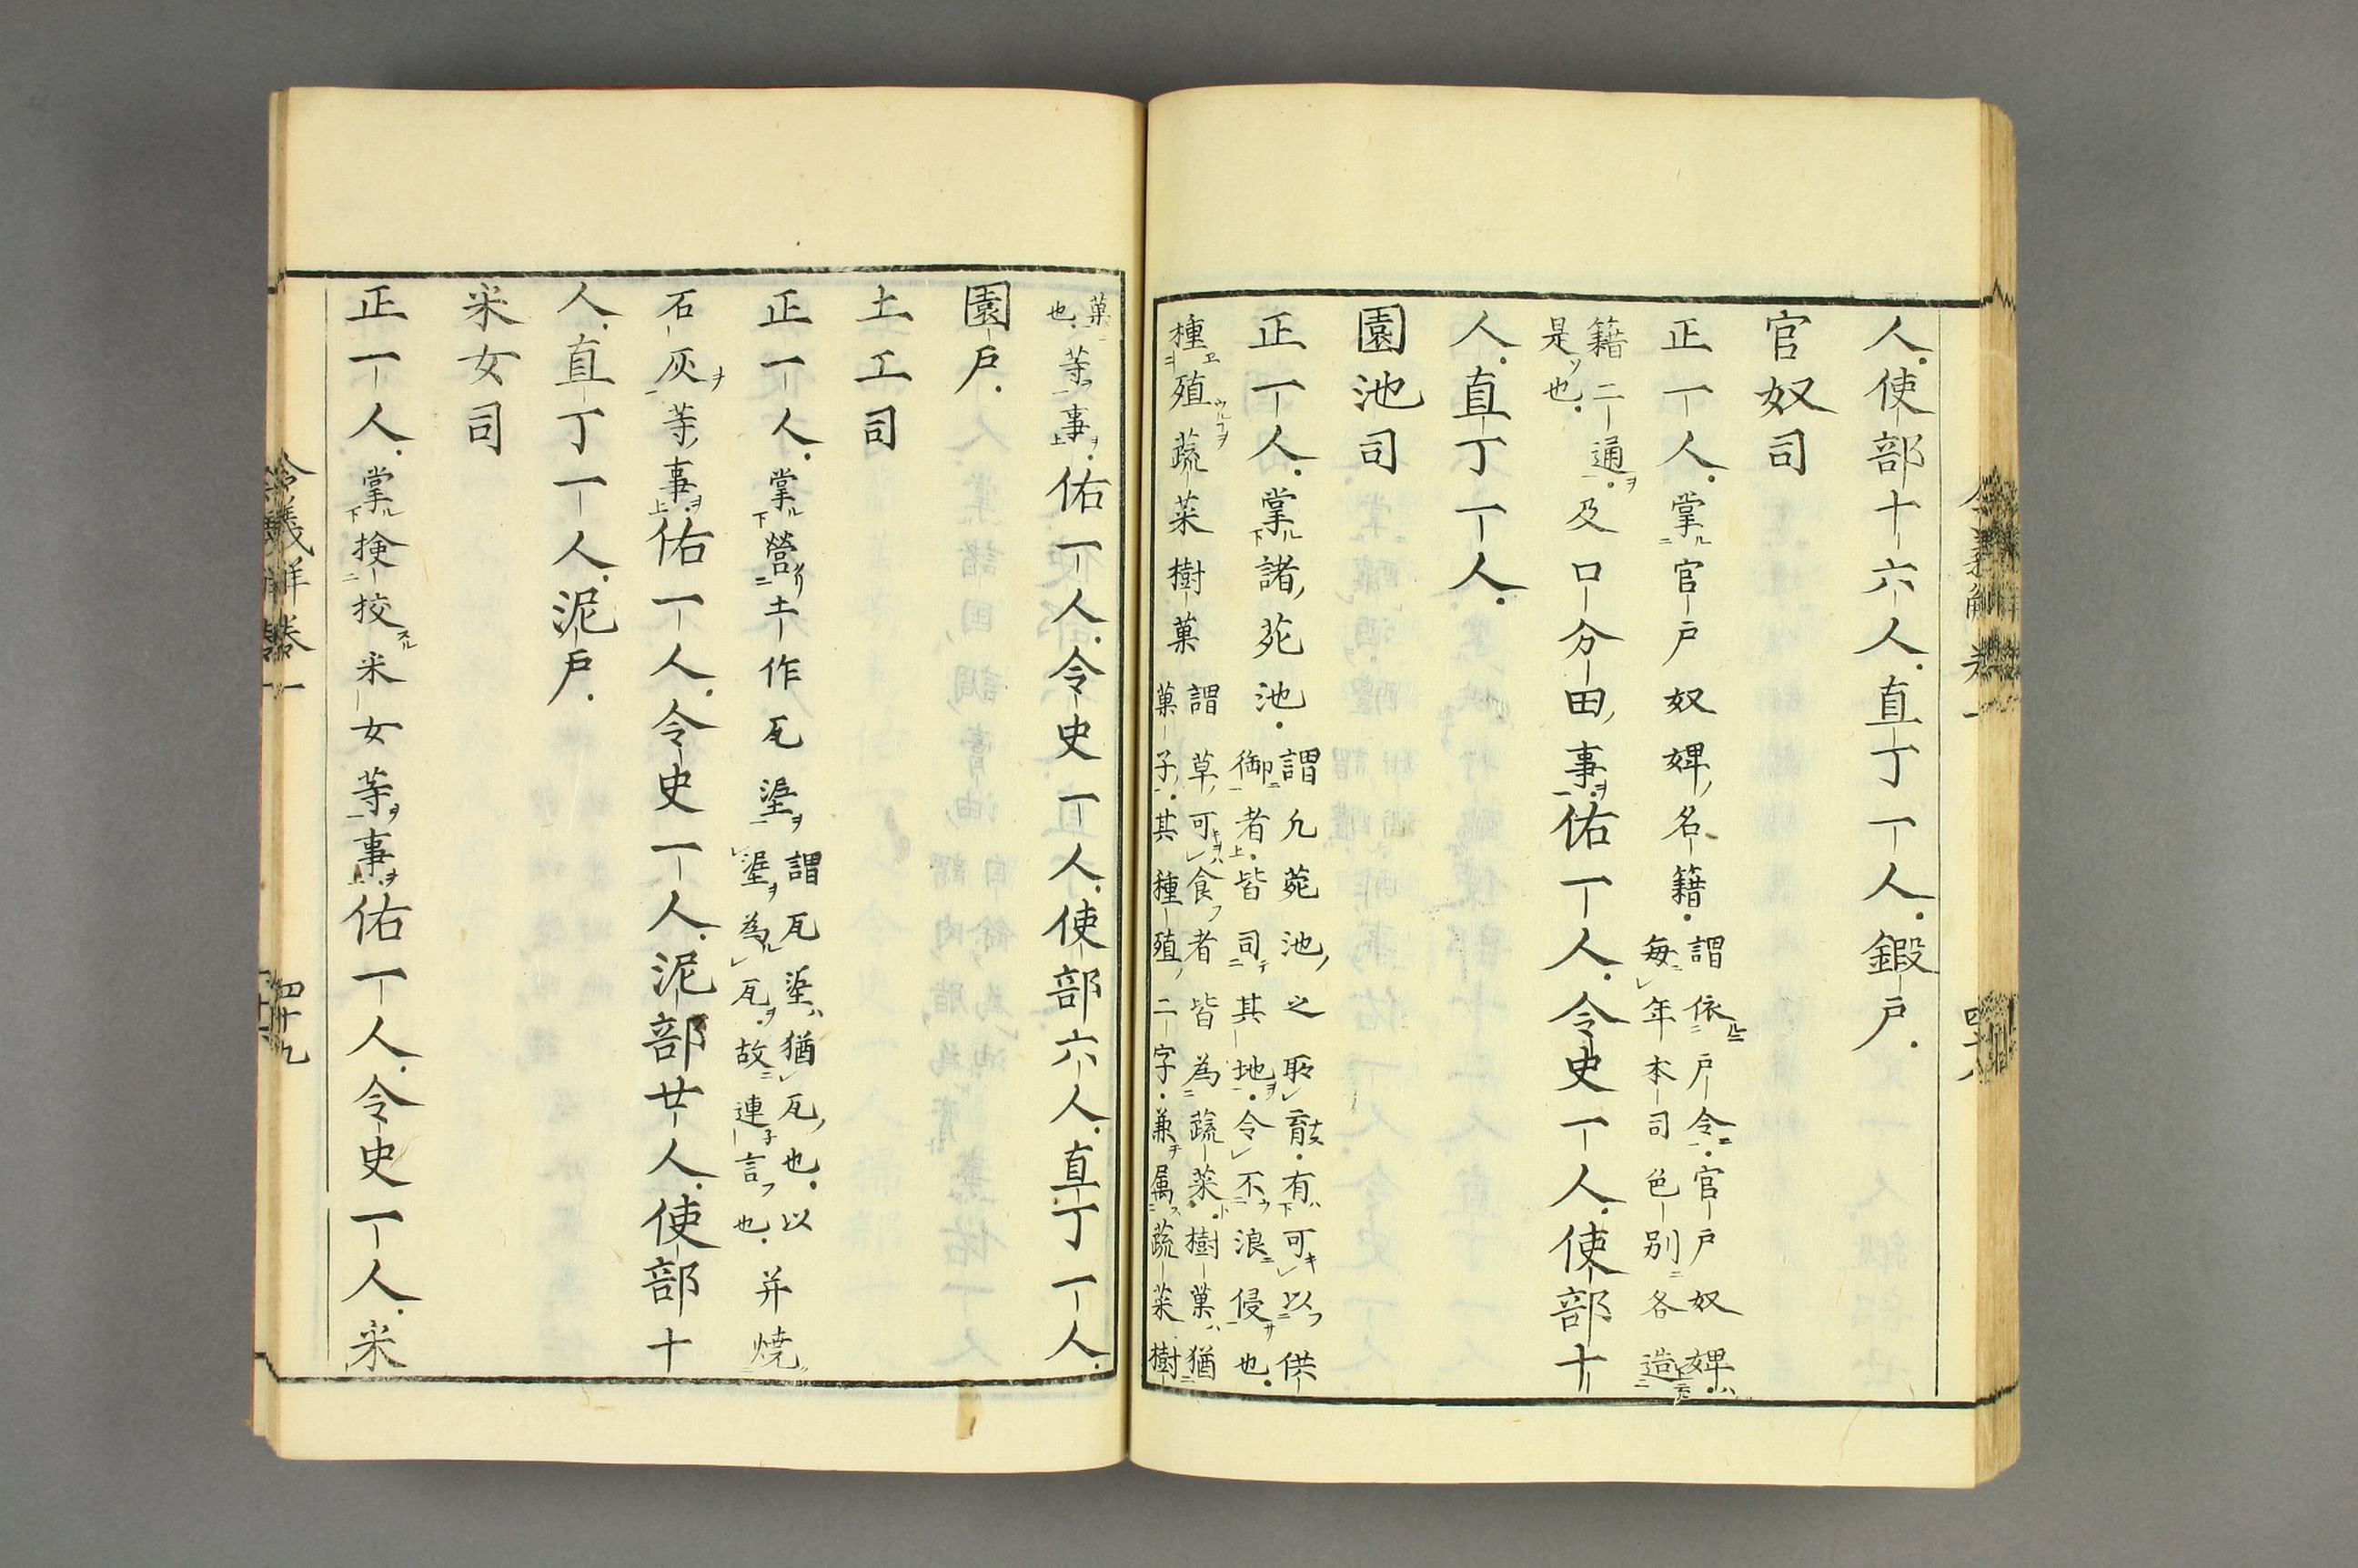 人使部十六人直丁一人鍛戸
官奴司
正一人掌官戸奴婢名籍謂依戸令官戸奴婢毎年本司色別各造
籍二通及口分田事是也佑一人令史一人使部十
人直丁一人
園池司
正一人掌諸苑池謂凡苑池之所育有可以供御者皆司其地令不浪侵也
種殖蔬菜樹菓謂草可食者皆為蔬菜樹菓猶菓子其種殖二字兼属蔬菜樹
菓也等事佑一人令史一人使部六人直丁一人
園戸
土工司
正一人掌營土作瓦埿謂瓦埿猶瓦也以埿為瓦故連言也并焼
石灰等事佑一人令史一人泥部廿人使部十
人直丁一人泥戸
采女司
正一人掌検挍采女等事佑一人令史一人采
令義解巻一
四十九